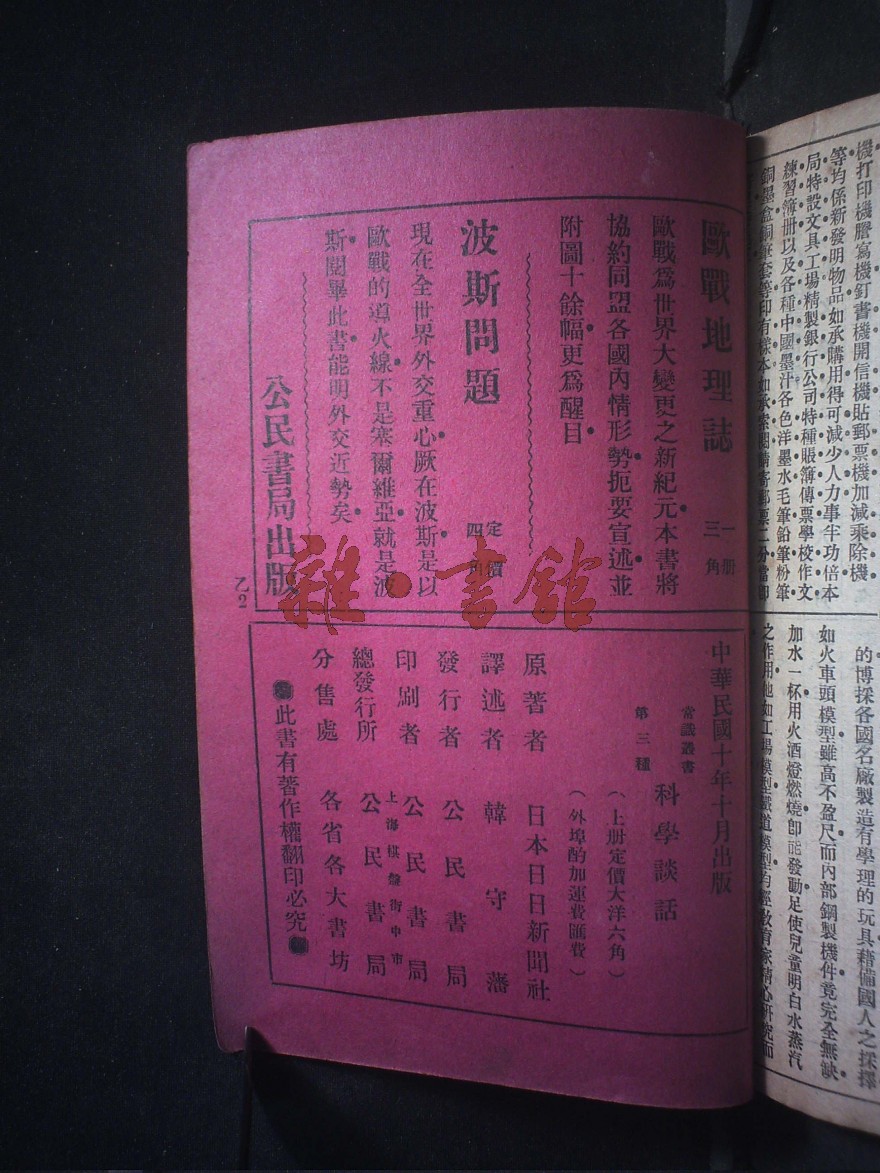 機打印機謄寫機釘書機開信機貼郵票機加減乘除機
等均係新發明物品如承購用得可減少人力事半功倍本
局特設文具工場精製銀行公司特種賬簿傳票學校作文
練習簿册以及各種中國墨汁各色洋墨水毛筆鉛筆粉筆
銅墨盒銅筆套等印有樣本如承索閱請寄郵票二分當即
的博採各國名廠製造有學理的玩具藉備國人之採擇
如火車頭模型雖高不盈尺而內部鋼製機件竟完全無缺
加水一杯用火酒燈燃燒卽能發動足使兒童明白水蒸汽
之作用他如工場模型鐵道模型均經教育家精心研究而
歐戰地理誌 一册 三角
歐戰爲世界大變更之新紀元本書將
協約同盟各國內情形勢扼要宣述並
附圖十餘幅更爲醒目
波斯問題 定價 四角
現在全世界外交重心厥在波斯是以
歐戰的導火線不是塞爾維亞就是波
斯閱畢此書能明外交近勢矣
公民書局出版
乙2
中華民國十年十月出版
常識叢書
第三種
科學談話
(上册定價大洋六角)
(外埠酌加運費匯費)
原著者 日本日日新聞社
譯述者 韓守藩
發行者 公民書局
印刷者 公民書局
總發行所 上海棋盤街中市 公民書局
分售處 各省各大書坊
此書有著作權翻印必究
雜·書館